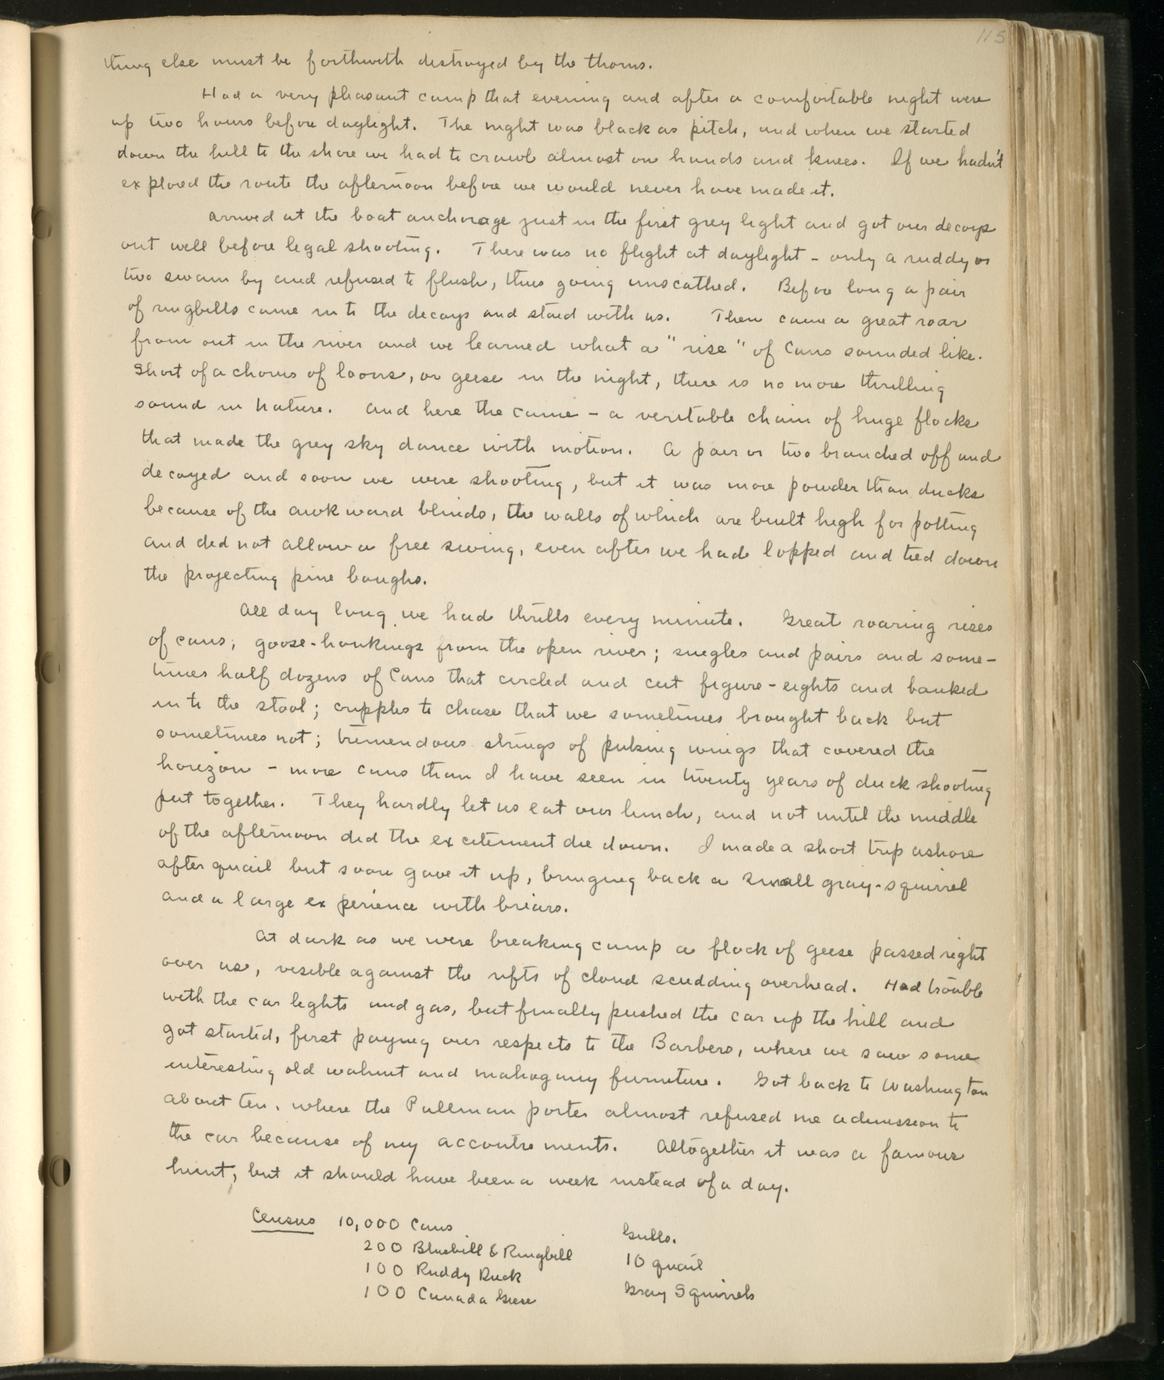 115
thing else must be forthwith distroyed by the thorns.
Had a very pleasant camp that evening and after a comfortable night were
up two hours before daylight. The night was black as pitch, and when we started
down the hill to the shore we had to crawl almost on hands and knees. If we hadn't
explored the route the afternoon before we would never have made it.
Arrived at the boat anchorage just in the first grey light and got our decoys
out well before legal shooting. There was no flight at daylight - only a ruddy or
two swam by and refused to flush, thus going unscathed. Before long a pair
of ringbills came in to the decoys and staid with us. Then came a great roar
from out in the river and we learned what a "rise" of Cans sounded like.
Short of a chorus of loons, or geese in the night, there is no more thrilling
sound in nature. And here the came - a veritable chain of huge flocks
that made the grey sky dance with motion. A pair or two branched off and
decoyed and soon we were shooting, but it was more powder than ducks
because of the awkward blinds, the walls of which are built high for potting
and did not allow a free swing, even after we had lopped and tied down
the projecting pine boughs.
All day long we had thrills every minute. Great roaring rises
of cans; goose-honkings from the open river; singles and pairs and some-
times half dozens of Cans that circled and cut figure-eights and banked
in to the stool; cripples to chase that we sometimes brought back but
sometimes not; tremendous strings of pulsing wings that covered the
horizon - more cans than I have seen in twenty years of duck shooting
put together. They hardly let us eat our lunch, and not until the middle
of the afternoon did the excitement die down. I made a short trip ashore
after quail but soon gave it up, bringing back a small gray-squirrel
and a large experience with briars.
At dark as we were breaking camp a flock of geese passed right
over us, visible against the rifts of cloud scudding overhead. Had trouble
with the car lights and gas, but finally pushed the car up the hill and
got started, first paying our respects to the Barbers, where we saw some
interesting old walnut and mahogany furniture. Got back to Washington
about ten, where the Pullman porter almost refused me admission to
the car because of my accoutrements. Altogether it was a famous
hunt, but it should have been a week instead of a day.
Census 10,000 Cans Gulls.
200 Bluebill & Ringbill 10 quail
100 Ruddy Duck Gray Squirrels
100 Canada Geese